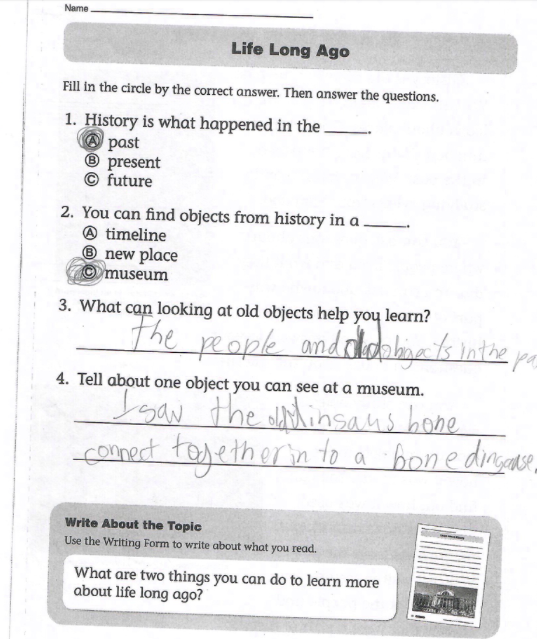 Name
Life Long Ago
Fill in the circle by the correct answer. Then answer the questions.
1. History is what happened in the ______.
Ⓐ past
Ⓑ present
Ⓒ future
2. You can find objects from history in a ______.
Ⓐ timeline
Ⓑ new place
Ⓒ museum
3. What can looking at old objects help you learn?
The people and old objects in the pa
4. Tell about one object you can see at a museum.
I saw the old bone
connect together in to a bone
Write About the Topic
Use the Writing Form to write about what you read.
What are two things you can do to learn more
about life long ago?